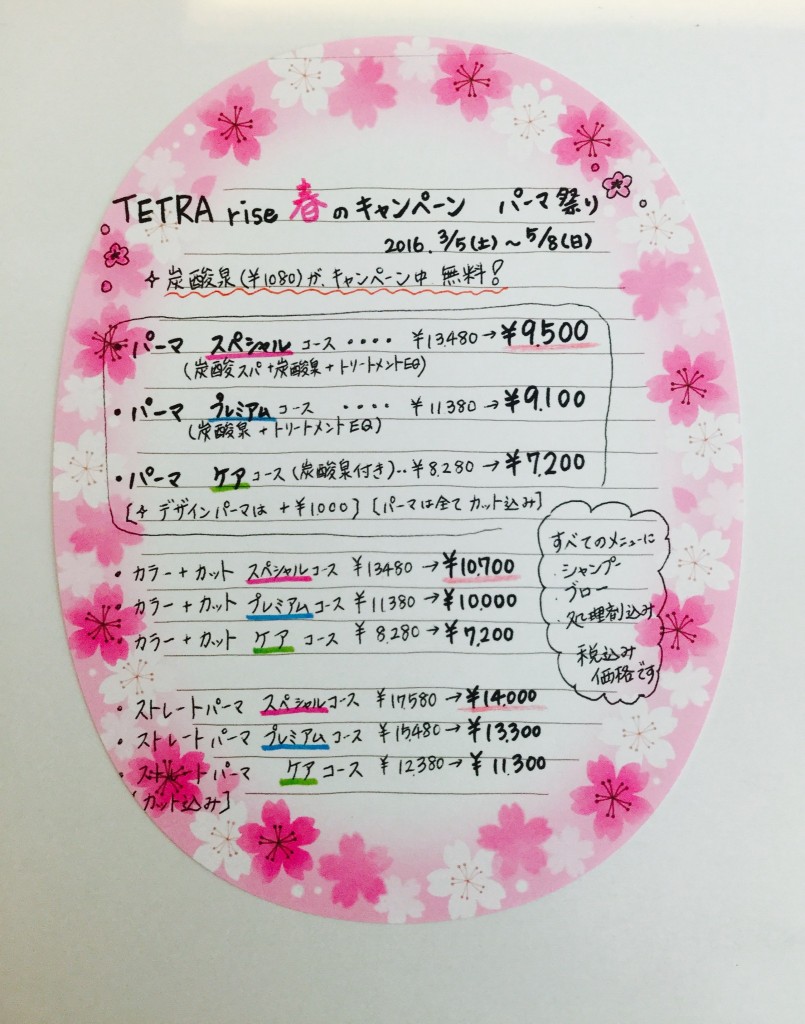 TETRA rise 春のキャンペーン パーマ祭り
2016. 3/5(土)～5/8(日)
✧ 炭酸泉(¥1080)が、キャンペーン中 無料!
・パーマ スペシャルコース ・・・・ ¥13.480→¥9.500
(炭酸スパ+炭酸泉+トリートメントEQ)
・パーマ プレミアムコース ・・・・ ¥11380→¥9.100
(炭酸泉+トリートメントEQ)
・パーマ ケアコース(炭酸泉付き)‥¥8.280→¥7,200
[✧ デザインパーマは +¥1.000] [パーマは全てカット込み]
・カラー+カット スペシャルコース ¥13480→¥10,700
・カラー+カット プレミアムコース ¥11380→¥10,000
・カラー+カット ケアコース ¥8.280→¥7,200
すべてのメニューに
・シャンプー
・ブロー
・処理剤込み
税込み
価格です
・ストレートパーマ スペシャルコース ¥17580→¥14,000
・ストレートパーマ プレミアムコース ¥15,480→¥13,300
・ストレートパーマ ケアコース ¥12,380→¥11,300
[カット込み]